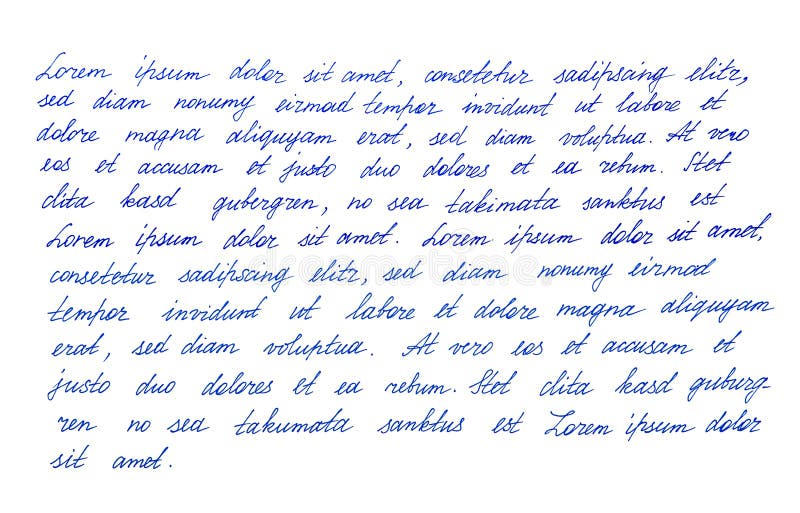 Lorem ipsum dolor sit amet, consetetur sadipscing elitr,
sed diam nonumy eirmod tempor invidunt ut labore et
dolore magna aliquyam erat, sed diam voluptua. At vero
eos et accusam et justo duo dolores et ea rebum. Stet
clita kasd gubergren, no sea takimata sanktus est
Lorem ipsum dolor sit amet. Lorem ipsum dolor sit amet,
consetetur sadipscing elitr, sed diam nonumy eirmod
tempor invidunt ut labore et dolore magna aliquyam
erat, sed diam voluptua. At vero eos et accusam et
justo duo dolores et ea rebum. Stet clita kasd guburg
ren no sea takumata sanktus est Lorem ipsum dolor
sit amet.